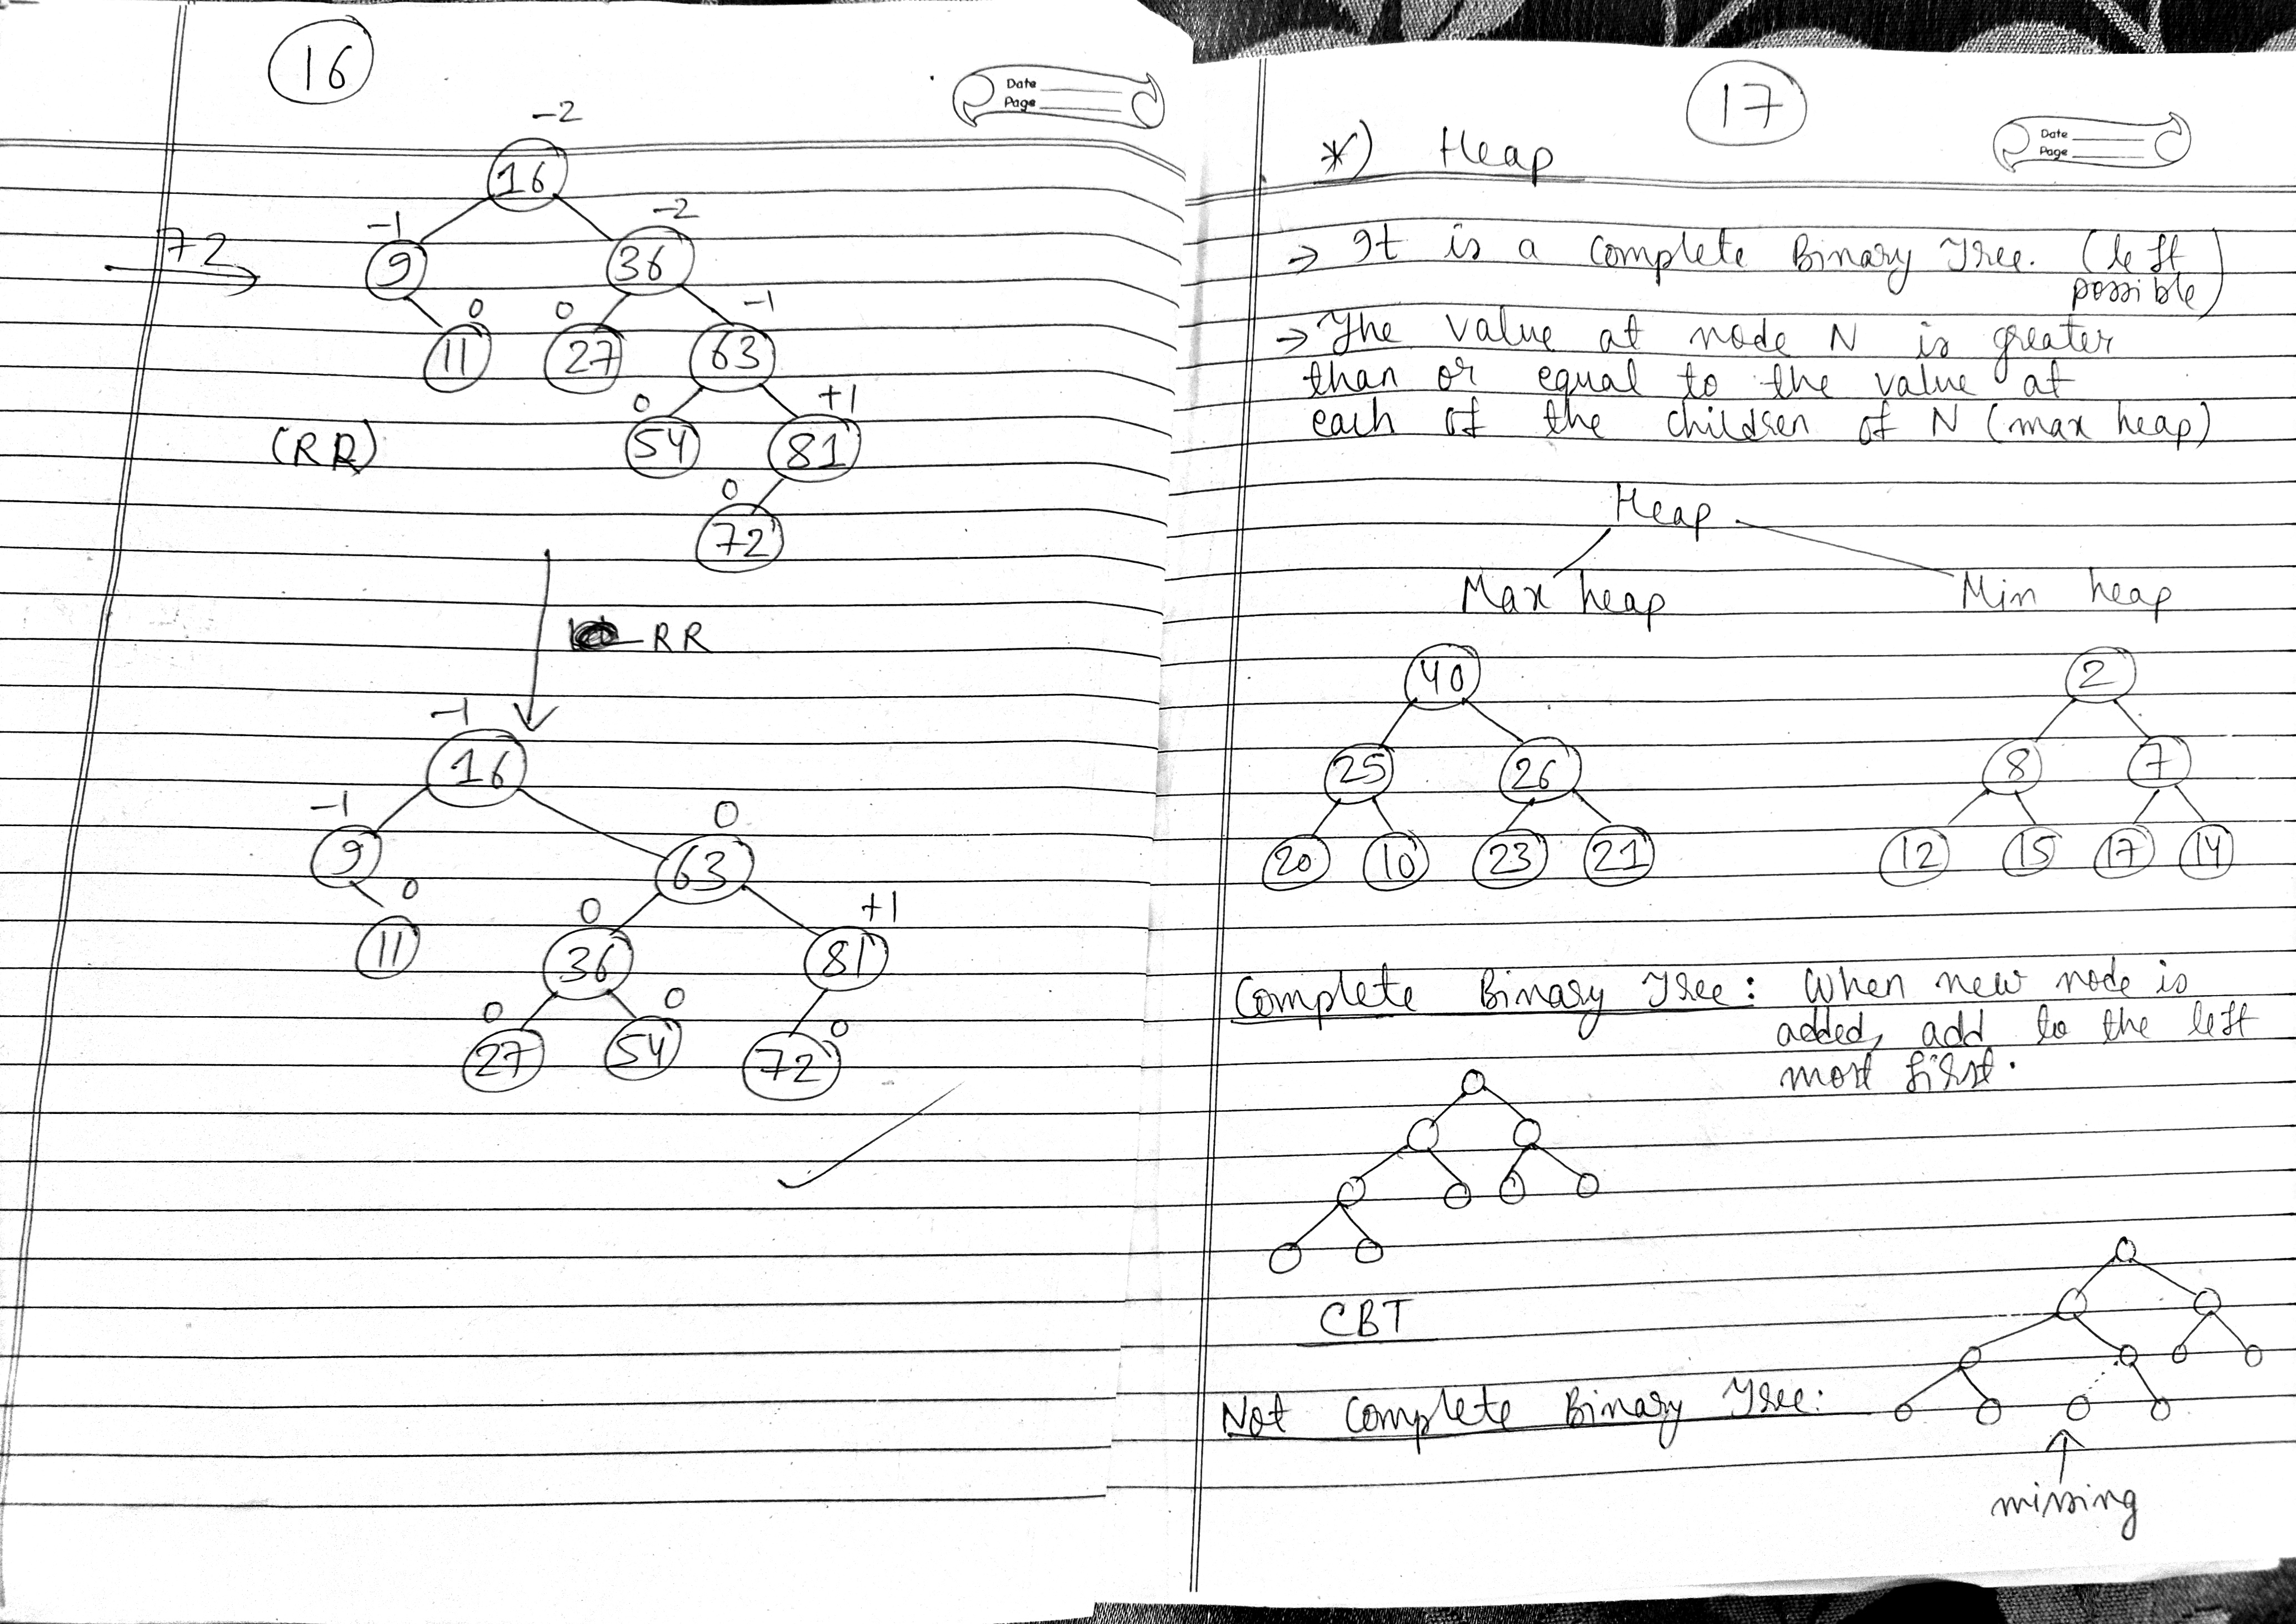 16
Date
Page
-2
16
-1
-2
72
9
36
0
0
-1
11
27
63
0
+1
(RR)
54
81
0
72
RR
-1
16
-1
0
9
63
0
0
+1
11
36
81
0
0
0
27
54
72
17
Date
Page
*) Heap
→ It is a Complete Binary Tree. (left
possible)
→ The value at node N is greater
than or equal to the value at
each of the children of N (max heap)
Heap
Max heap
Min heap
40
25 26
20 10 23 21
2
8 7
12 15 17 14
Complete Binary Tree: When new node is
added, add to the left
most first.
CBT
Not Complete Binary Tree:
missing